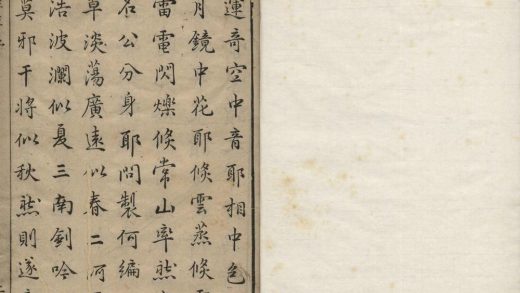 運奇空中音耶相中色
月鏡中花耶倏雲蒸倏
雷電閃爍倏常山率然
名公分身耶問製何編
草淡蕩廣遠以春二河
浩波瀾似夏三南劍吟
莫邪干將似秋然則遂